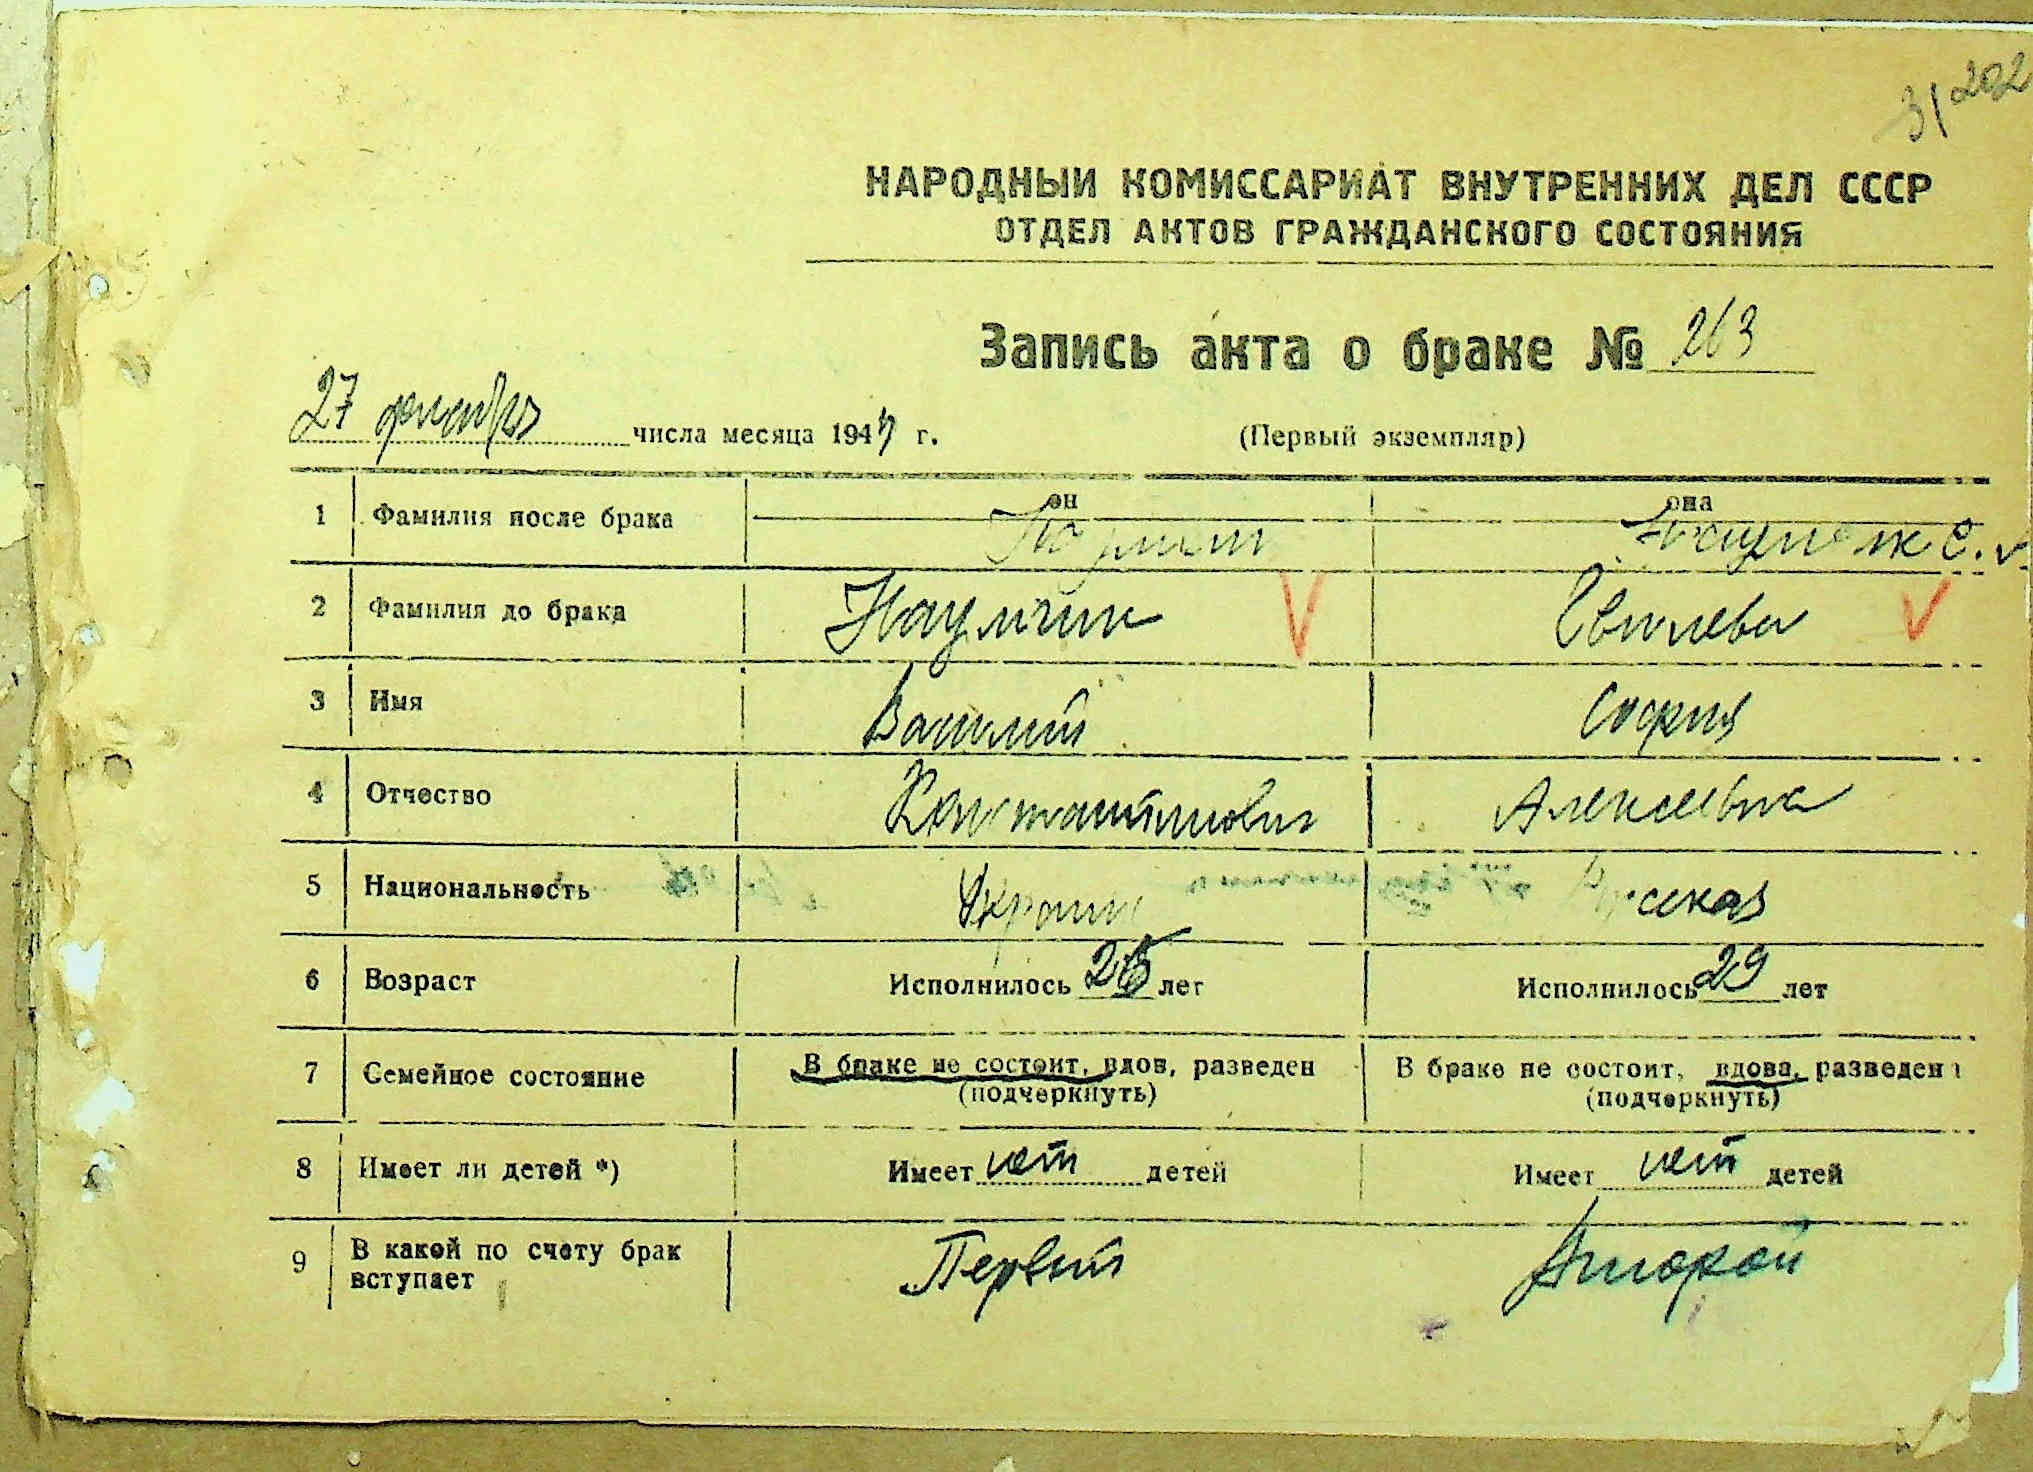 31 202
НАРОДНЫЙ КОМИССАРИАТ ВНУТРЕННИХ ДЕЛ СССР
ОТДЕЛ АКТОВ ГРАЖДАНСКОГО СОСТОЯНИЯ
Запись акта о браке № 263
27 декабря числа месяца 1944 г. (Первый экземпляр)
он она
1 Фамилия после брака
2 Фамилия до брака Наумчик V V
3 Имя Василий София
4 Отчество Константинович Алексеевна
5 Национальность Украин Русская
6 Возраст Исполнилось лет Исполнилось 29 лет
7 Семейное состояние В браке не состоит, вдов, разведен В браке не состоит, вдова, разведена
(подчеркнуть) (подчеркнуть)
8 Имеет ли детей *) Имеет нет детей Имеет нет детей
9 В какой по счету брак вступает Первый Второй